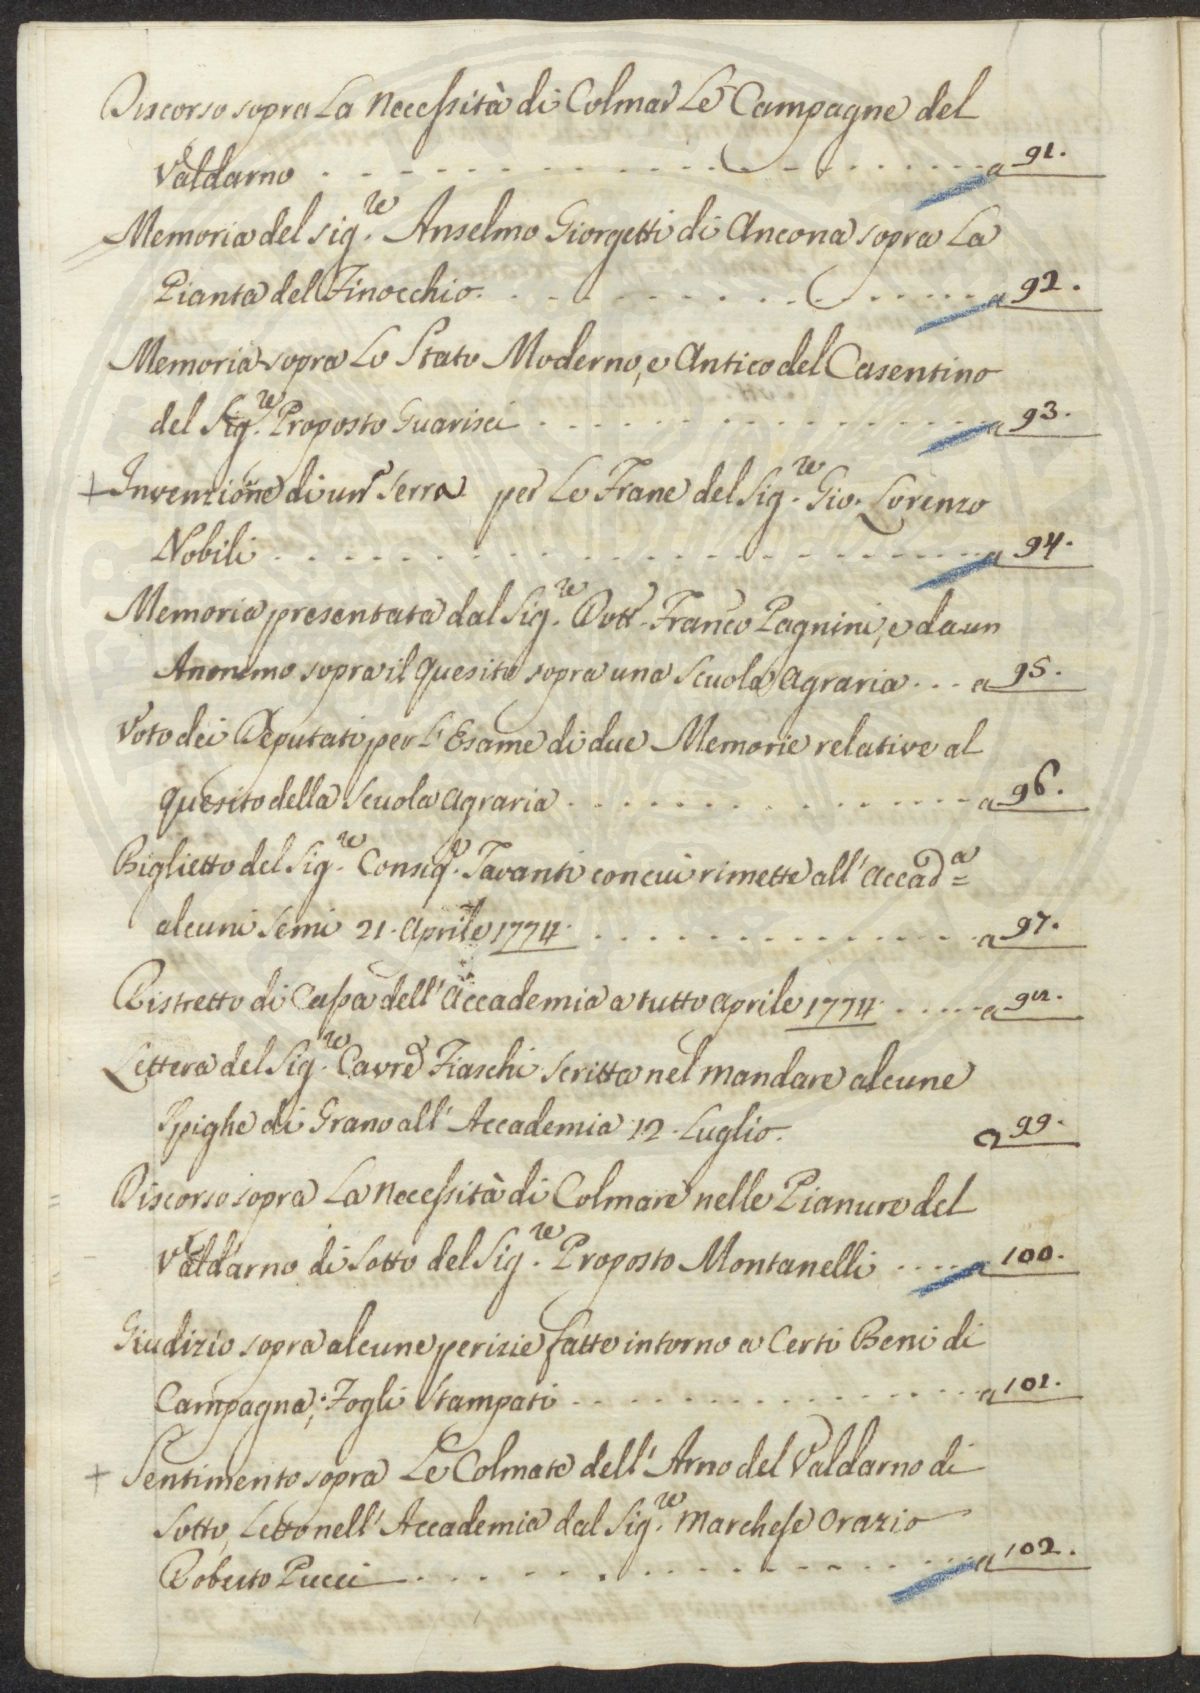 Discorso sopra La necessità di Colmar Le Campagne del
Valdarno . . . . . . . . . . . . . . . . . . a 91.
Memoria del Sig.re Anselmo Giorgetti di Ancona sopra La
Pianta del Finocchio . . . . . . . . . . . . . a 92.
Memoria sopra Lo Stato Moderno, e Antico del Casentino
del Sig.re Proposto Guarisci . . . . . . . . . . . . a 93.
+ Invenzione di un Serra per Le Frane del Sig.re Gio. Lorenzo
Nobili . . . . . . . . . . . . . . . . . . a 94.
Memoria presentata dal Sig.re Dott. Franco Pagnini, e da un
Anonimo sopra il quesito sopra una Scuola Agraria . . . a 95.
Voto dei Deputati per L'Esame di due Memorie relative al
quesito della Scuola Agraria . . . . . . . . . . . . a 96.
Biglietto del Sig.re Consig.re Tavanti con cui rimette all'Accad.a =
alcuni Semi 21. Aprile 1774. . . . . . . . . . . . . a 97.
Ristretto di Cassa dell'Accademia a tutto Aprile 1774. . . . . . a 98.
Lettera del Sig.re Cavre Fiaschi scritta nel mandare alcune
Spighe di Grano all'Accademia 12. Luglio. a 99.
Discorso sopra La necessità di Colmare nelle Pianure del
Valdarno di Sotto del Sig.re Proposto Montanelli . . . . a 100.
Giudizio sopra alcune perizie fatte intorno a Certi Beni di
Campagna; Fogli Stampati . . . . . . . . . . . . a 101.
+ Sentimento sopra Le Colmate dell'Arno del Valdarno di
Sotto, Letto nell'Accademia dal Sig.re Marchese Orazio
Roberto Pucci . . . . . . . . . . . . . . . a 102.